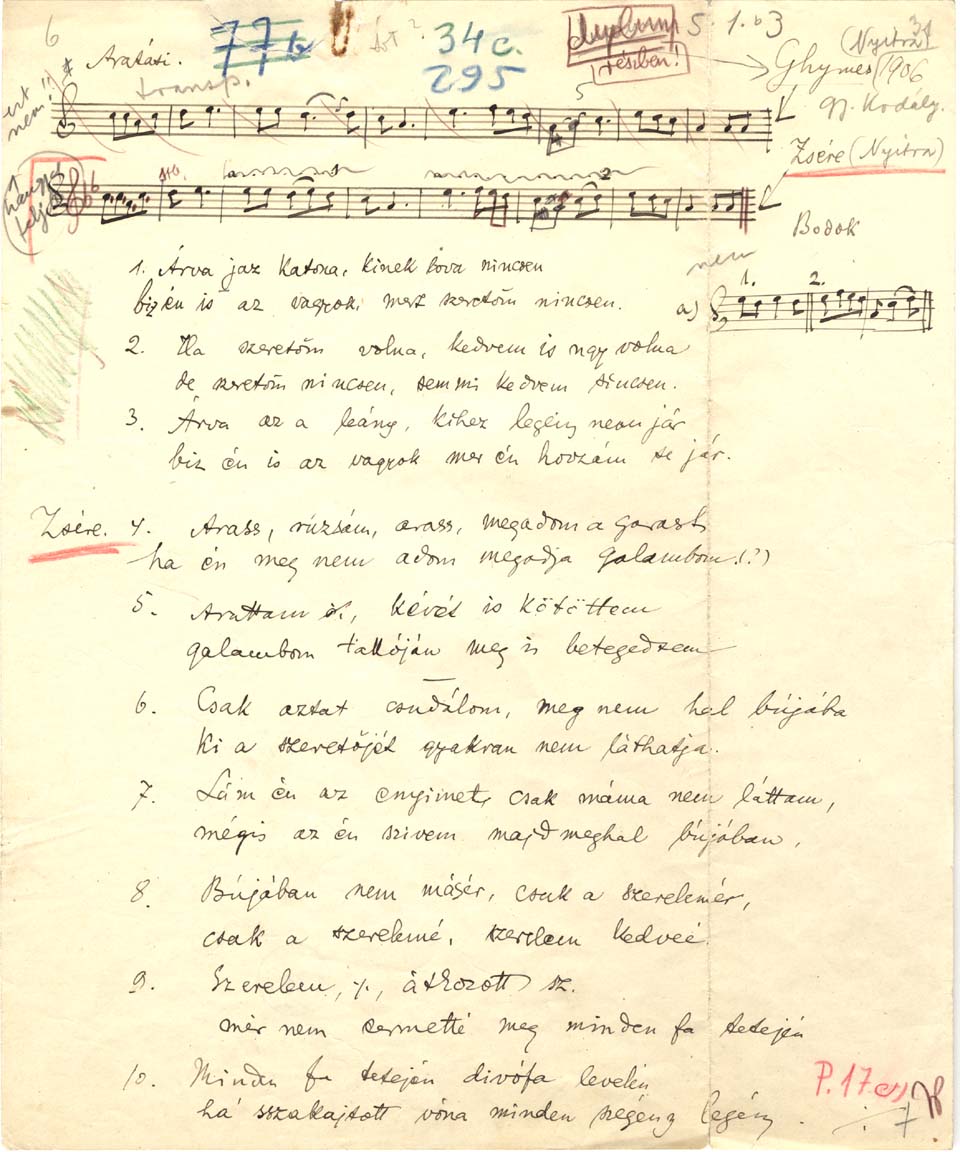 6
Aratási.
77
34 c.
295
duplum
részben!
5
(Nyitra)
34
Ghymes 1906
gy. Kodály.
ezt
nem!
transp.
5
Zsére (Nyitra)
Bodok
nem
a) 1. 2.
1. Árva jaz katona, kinek lova nincsen
biz én is az vagyok, mert szeretőm nincsen.
2. Ha szeretőm volna, kedvem is ugy volna
de szeretőm nincsen, semmi kedvem sincsen.
3. Árva az a leány, kihez legény nem jár
biz én is az vagyok mer én hozzám se jár.
Zsére. 4. Arass, rúzsám, arass, megadom a garast
ha én meg nem adom megadja galambom (?)
5. Arattam is, kévét is kötöttem
galambom tallóján meg is betegedtem
6. Csak aztat csudálom, meg nem hal bújába
Ki a szeretőjét gyakran nem láthatja.
7. Lám én az enyimet, csak máma nem láttam,
mégis az én szivem majd meghal bújában,
8. Bújában nem másér, csak a szerelemér,
csak a szerelemé, szerelem kedveé.
9. Szerelem, ·/·, átkozott sz.
mér nem termetté meg minden fa tetején
10. Minden fa tetején divófa levelén
há' sszakajtott vóna minden szegény legény.
P. 17